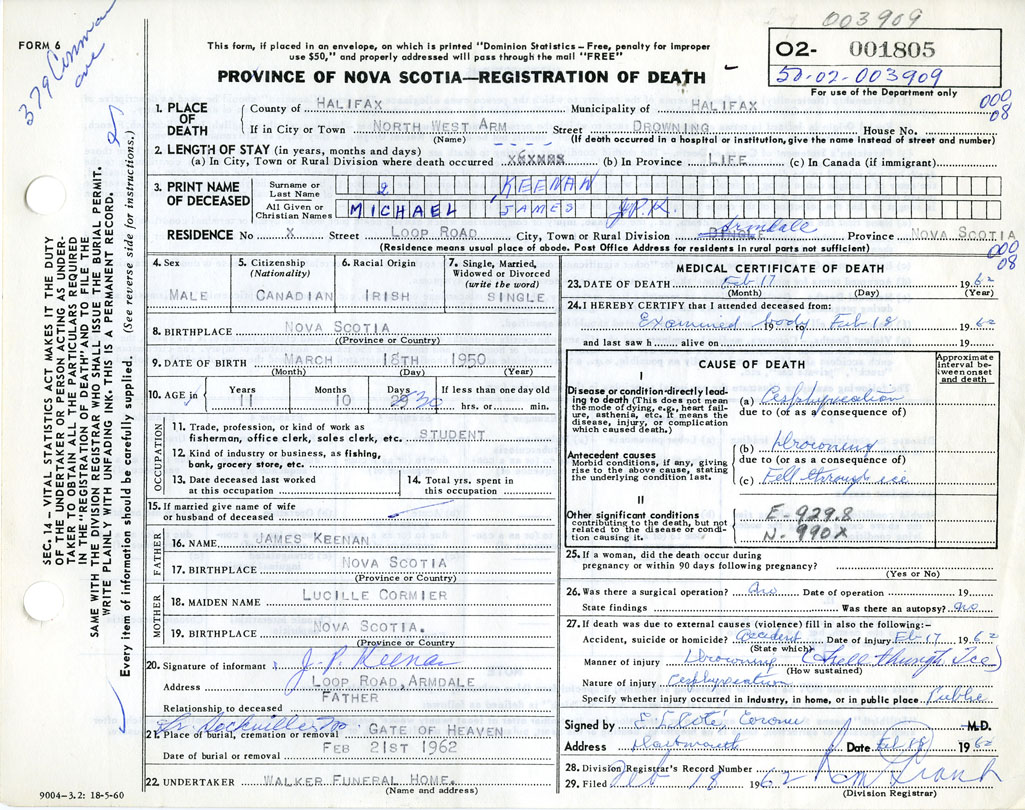 003909
FORM 6
379
ave
This form, if placed in an envelope, on which is printed "Dominion Statistics – Free, penalty for improper
use $50," and properly addressed will pass through the mail "FREE"
O2- 001805
50-02-003909
For use of the Department only
PROVINCE OF NOVA SCOTIA—REGISTRATION OF DEATH
000
08
1. PLACE OF DEATH
County of HALIFAX Municipality of HALIFAX
If in City or Town NORTH WEST ARM Street DROWNING House No.
(Name) (If death occurred in a hospital or institution, give the name instead of street and number)
2. LENGTH OF STAY (in years, months and days)
(a) In City, Town or Rural Division where death occurred (b) In Province LIFE (c) In Canada (if immigrant)
3. PRINT NAME OF DECEASED
Surname or Last Name KEENAN
All Given or Christian Names MICHAEL JAMES J.P.K.
RESIDENCE No X Street LOOP ROAD City, Town or Rural Division DINGLE Armdale Province NOVA SCOTIA
(Residence means usual place of abode. Post Office Address for residents in rural parts not sufficient)
000
08
SEC. 14 – VITAL STATISTICS ACT MAKES IT THE DUTY
OF THE UNDERTAKER OR PERSON ACTING AS UNDER-
TAKER TO OBTAIN ALL THE PARTICULARS REQUIRED
IN THE "REGISTRATION OF DEATH" AND TO FILE THE
SAME WITH THE DIVISION REGISTRAR WHO SHALL ISSUE THE BURIAL PERMIT.
WRITE PLAINLY WITH UNFADING INK. THIS IS A PERMANENT RECORD.
Every item of information should be carefully supplied. (See reverse side for instructions.)
4. Sex
MALE
5. Citizenship
(Nationality)
CANADIAN
6. Racial Origin
IRISH
7. Single, Married,
Widowed or Divorced
(write the word)
SINGLE
8. BIRTHPLACE NOVA SCOTIA
(Province or Country)
9. DATE OF BIRTH MARCH 18TH 1950
(Month) (Day) (Year)
10. AGE in
Years 11
Months 10
Days 30
If less than one day old
hrs. or min.
OCCUPATION
11. Trade, profession, or kind of work as
fisherman, office clerk, sales clerk, etc. STUDENT
12. Kind of industry or business, as fishing,
bank, grocery store, etc.
13. Date deceased last worked
at this occupation
14. Total yrs. spent in
this occupation
15. If married give name of wife
or husband of deceased
FATHER
16. NAME JAMES KEENAN
17. BIRTHPLACE NOVA SCOTIA
(Province or Country)
MOTHER
18. MAIDEN NAME LUCILLE CORMIER
19. BIRTHPLACE NOVA SCOTIA.
(Province or Country)
20. Signature of informant J. P. Keenan
Address LOOP ROAD, ARMDALE
Relationship to deceased FATHER
21. Place of burial, cremation or removal GATE OF HEAVEN
Date of burial or removal FEB 21ST 1962
22. UNDERTAKER WALKER FUNERAL HOME.
(Name and address)
9004–3.2: 18-5-60
MEDICAL CERTIFICATE OF DEATH
23. DATE OF DEATH Feb 17 1962
(Month) (Day) (Year)
24. I HEREBY CERTIFY that I attended deceased from:
Examined body 19 to Feb 18 1962
and last saw h alive on 19
CAUSE OF DEATH
Approximate
interval be-
tween onset
and death
I
Disease or condition directly lead-
ing to death (This does not mean
the mode of dying, e.g., heart fail-
ure, asthenia, etc. It means the
disease, injury, or complication
which caused death.)
(a) Asphyxiation
due to (or as a consequence of)
Antecedent causes
Morbid conditions, if any, giving
rise to the above cause, stating
the underlying condition last.
(b) Drowning
due to (or as a consequence of)
(c) Fell through ice
II
Other significant conditions
contributing to the death, but not
related to the disease or condi-
tion causing it.
E-929.8
N-990X
25. If a woman, did the death occur during
pregnancy or within 90 days following pregnancy?
(Yes or No)
26. Was there a surgical operation? no Date of operation 19
State findings Was there an autopsy? no
27. If death was due to external causes (violence) fill in also the following:–
Accident, suicide or homicide? accident Date of injury Feb 17 1962
(State which)
Manner of injury Drowning (Fell through Ice)
(How sustained)
Nature of injury asphyxiation
Specify whether injury occurred in Industry, in home, or in public place Public
Signed by M.D.
Address Dartmouth Date Feb 18 1962
28. Division Registrar's Record Number
29. Filed Feb 18 1962
(Division Registrar)